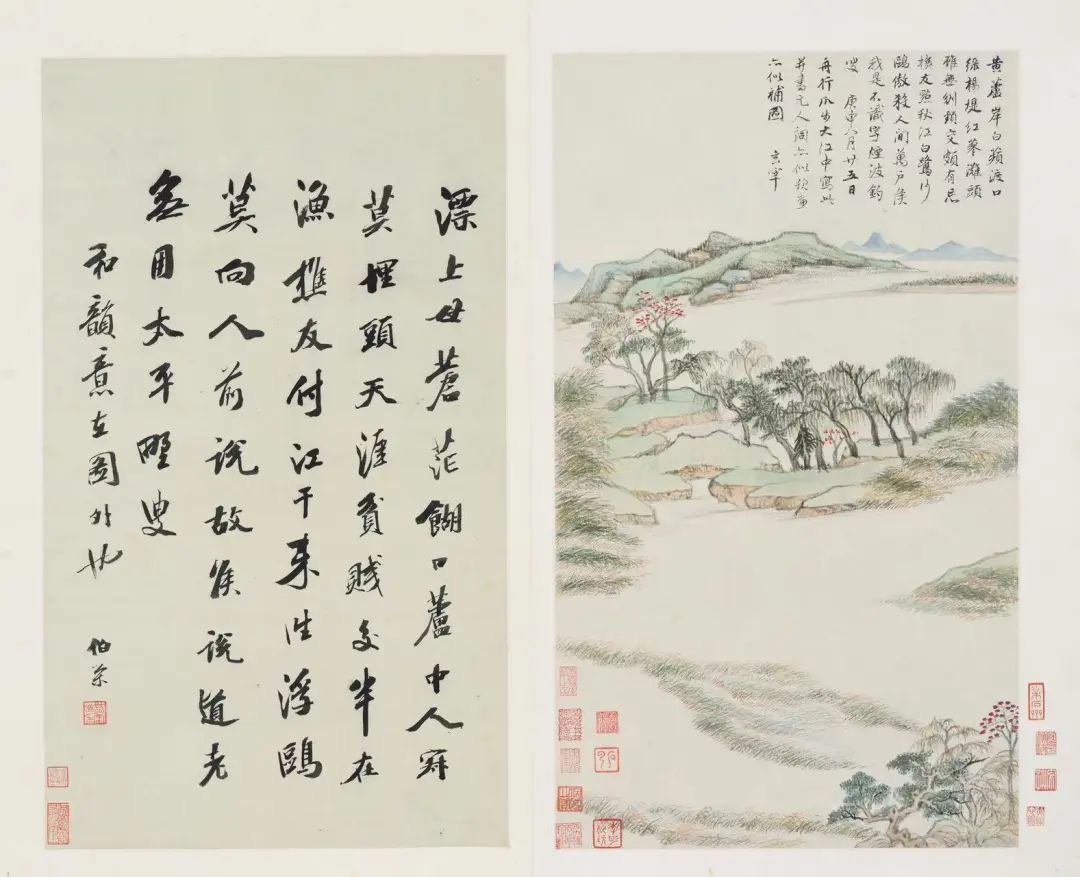 黄蘆岸白蘋渡口
綠楊堤紅蓼灘頭
雖無刎頸交頗有忘
機友點秋江白鷺沙
鷗傲殺人間萬戶侯
我是不識字煙波釣
叟 庚申八月廿五日
舟行爪步大江中寫此
并書元人詞亦似題画
亦似補圖 玄宰
漂上母蒼茫餬口蘆中人
莫埋頭天涯貧賤交半在
漁樵友付江干來往浮鷗
莫向人前說故侯說道老
無用太平野叟
和韻意在圖外也
伯